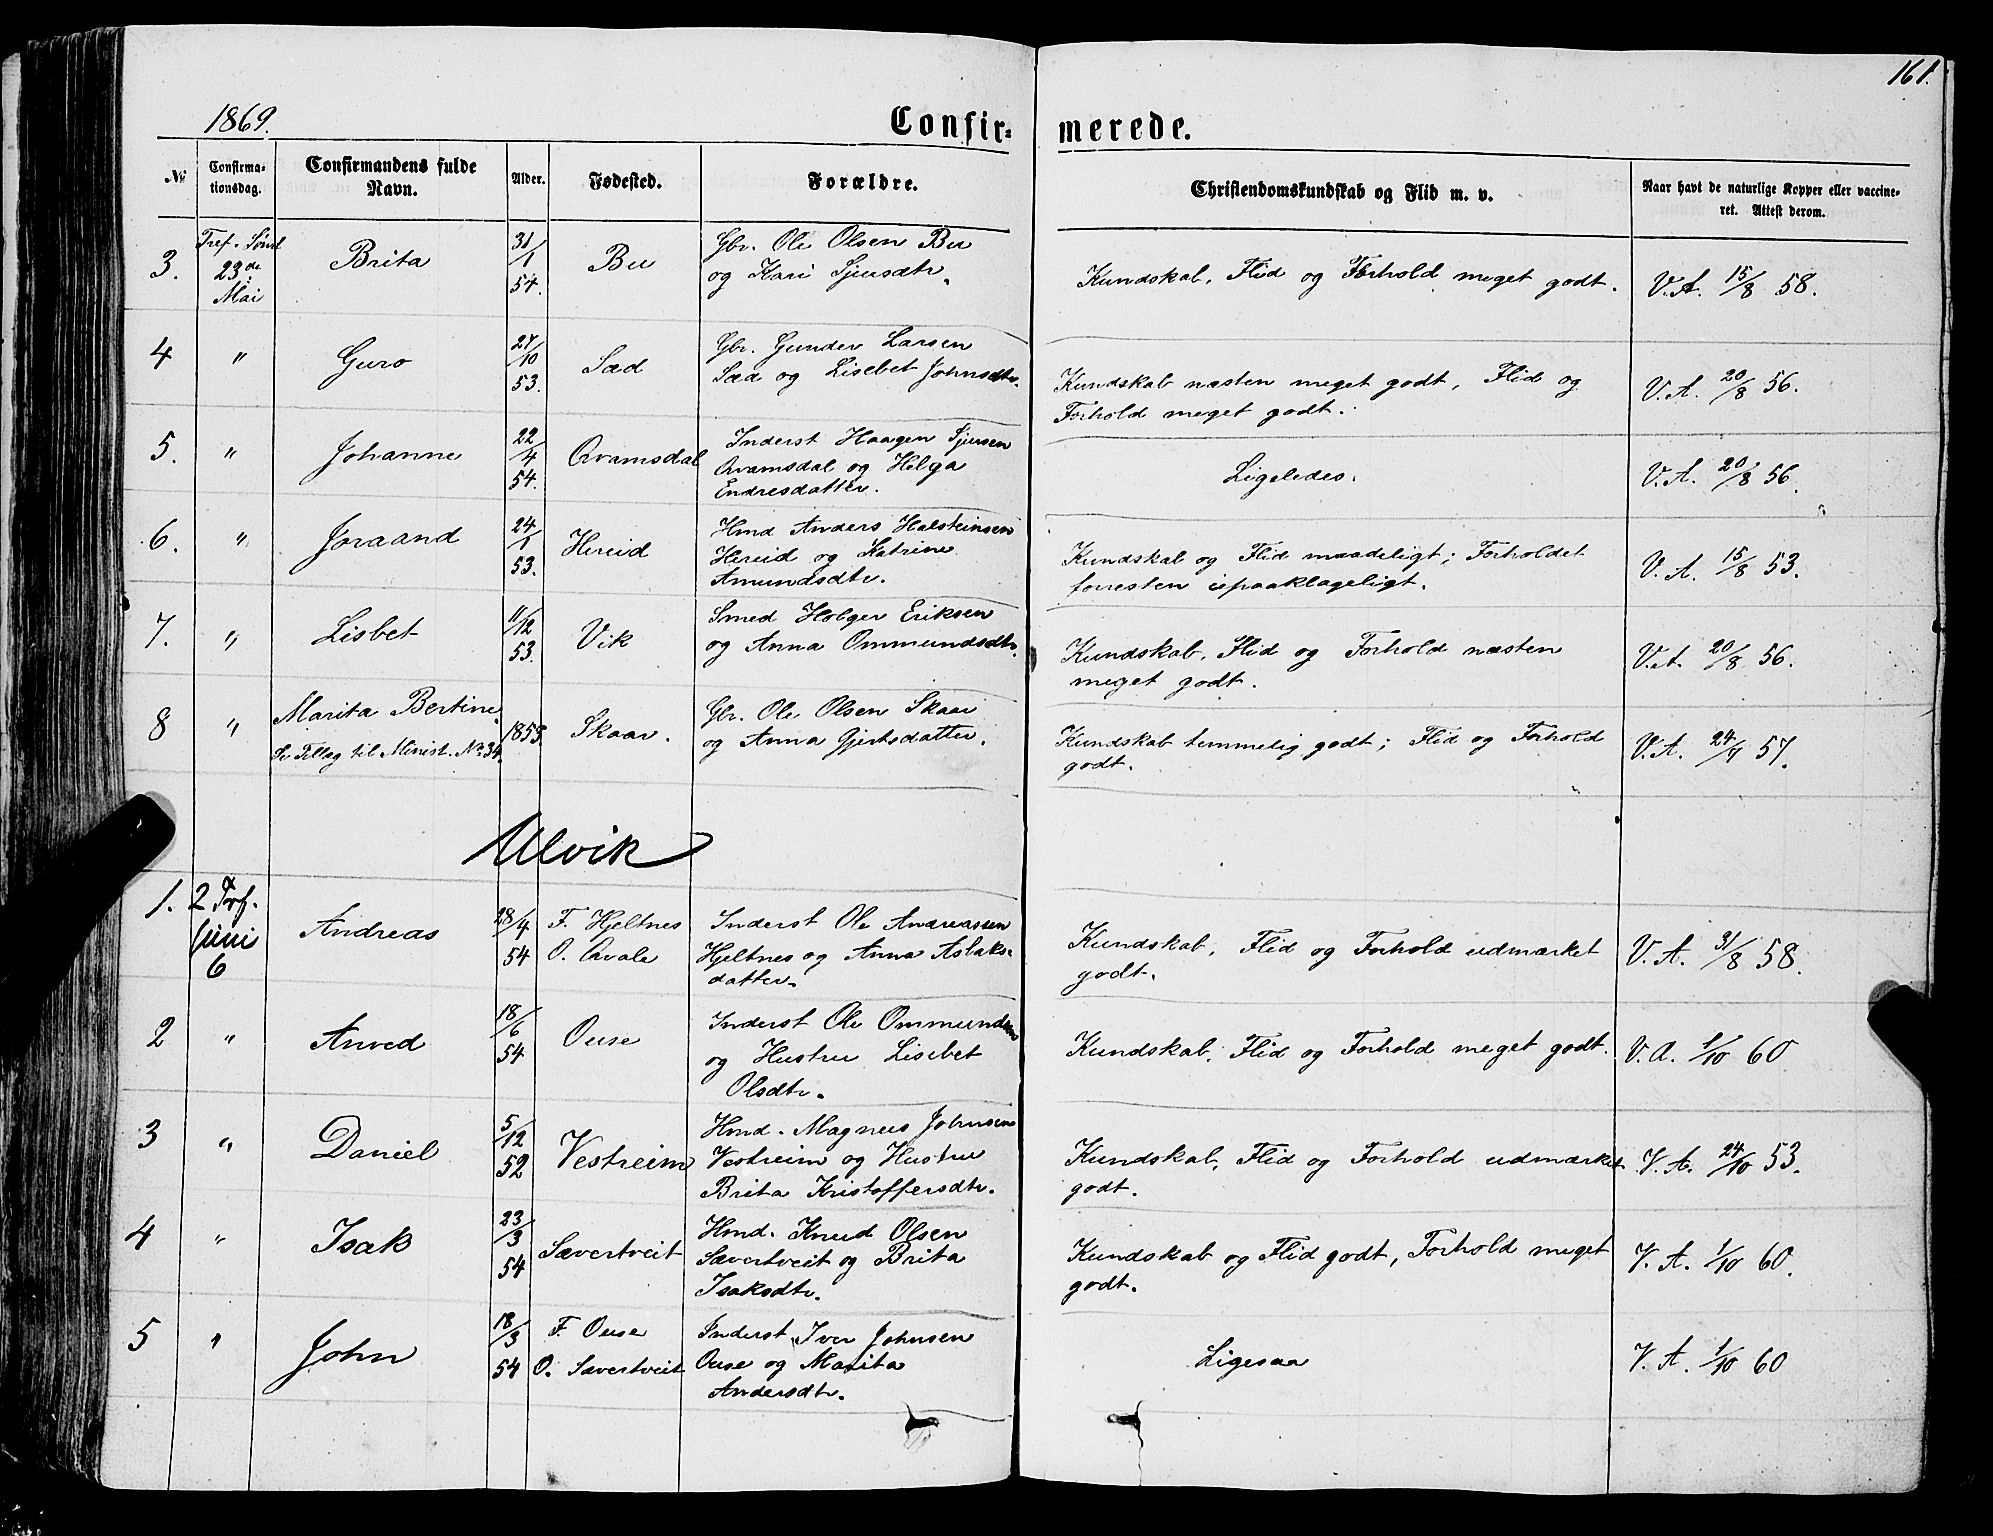 161.
1869.
Confir-merede.
№
Confirma-
tionsdag.
Confirmandens fulde
Navn.
Alder.
Fødested.
Forældre.
Christendomskundskab og Flid m. v.
Naar havt de naturlige Kopper eller vaccine-
ret. Attest derom.
3.
Tref. Sønd
23de
Mai
Brita
31/1
54.
Bu
Gbr. Ole Olsen Bu
og Kari Sjursdtr.
Kundskab, Flid og Forhold meget godt.
V.A. 15/8 58.
4
"
Guro
27/10
53.
Sæd
Gbr. Gunder Larsen
Sæd og Lisebet Johnsdtr.
Kundskab næsten meget godt, Flid og
Forhold meget godt.
V.A. 20/8 56.
5.
"
Johanne
22/4
54.
Qvamsdal
Inderst Haagen Sjursen
Qvamsdal og Helga
Endresdatter.
Ligeledes.
V.A. 20/8 56.
6.
"
Joraand
24/1
53.
Hereid
Hmd Anders Halsteinsen
Hereid og Katrine
Amundsdtr.
Kundskab og Flid maadeligt; Forholdet
forresten upaaklageligt.
V.A. 15/8 53.
7.
"
Lisbet
11/12
53.
Vik
Smed Holger Eriksen
og Anna Ommundsdtr.
Kundskab, Flid og Forhold næsten
meget godt.
V.A. 20/8 56.
8
"
Marita Bertine.
Se Tillag til Minist. No. 34.
1853.
Skaar.
Gbr. Ole Olsen Skaar
og Anna Gjertsdatter.
Kundskab temmelig godt; Flid og Forhold
godt.
V.A. 24/7 57.
Ulvik
1.
2 Trf.
Juni
6
Andreas
28/4
54
F. Hjeltnes
O. Qvale
Inderst Ole Andreassen
Hjeltnes og Anna Aslaks-
datter.
Kundskab, Flid og Forhold udmærket
godt.
V.A. 31/8 58.
2
"
Anved
18/6
54
Ouse
Inderst Ole Ommundsen
og Hustru Lisebet
Olsdtr.
Kundskab, Flid og Forhold meget godt.
V.A. 1/10 60
3
"
Daniel
5/12
52
Vestreim
Hmd. Magnus Johnsen
Vestreim og Hustru
Brita Kristoffersdtr.
Kundskab, Flid og Forhold udmærket
godt.
V.A. 24/10 53.
4
"
Isak
23/3
54
Sævertveit
Hmd. Knud Olsen
Sævertveit og Brita
Isaksdtr.
Kundskab og Flid godt, Forhold meget
godt.
V.A. 1/10 60.
5
"
John
18/3
54
F. Ouse
O. Sævertveit
Inderst Iver Johnsen
Ouse og Marita
Andersdtr.
Ligesaa
V.A. 1/10 60